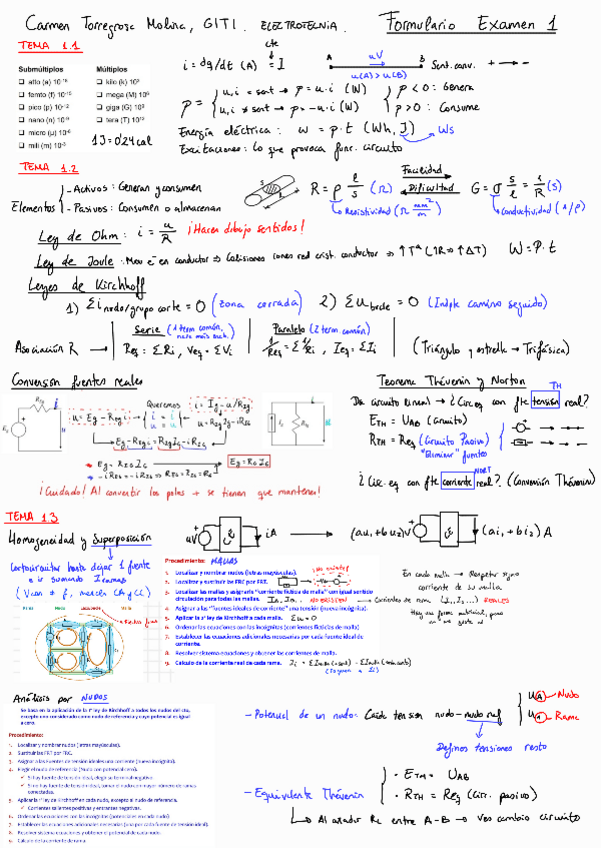 Carmen Torregrosa Molina, GITI. ELECTROTECNIA. Formulario Examen 1
TEMA 1.1
Submúltiplos Múltiplos
atto (a) 10⁻¹⁸ kilo (k) 10³
femto (f) 10⁻¹⁵ mega (M) 10⁶
pico (p) 10⁻¹² giga (G) 10⁹
nano (n) 10⁻⁹ tera (T) 10¹²
micro (μ) 10⁻⁶
mili (m) 10⁻³
1J = 0'24 cal
i = dq/dt (A) = I
cte
A uV B Sent. conv. + → -
u(A) > u(B)
p = { u, i = sent → p = u·i (W)
u, i ≠ sent → p = -u·i (W)
p < 0: Genera
p > 0: Consume
Energía eléctrica: w = p·t (Wh, J) Ws
Excitaciones: Lo que provoca func. circuito
TEMA 1.2
Elementos { - Activos: Generan y consumen
- Pasivos: Consumen o almacenan
R = ρ l/s (Ω)
Resistividad (Ω mm²/m)
Facilidad
Dificultad
G = σ s/l = 1/R (S)
Conductividad (1/ρ)
Ley de Ohm: i = u/R ¡Hacen dibujo sentidos!
Ley de Joule: Mov e⁻ en conductor → Colisiones iones red crist. conductor → ↑Tª (↑R → ↑ΔT) W = P·t
Leyes de Kirchhoff
1) Σi nodo/grupo corte = 0 (zona cerrada) 2) Σu brcde = 0 (Indpte camino seguido)
Asociación R →
Serie (1 term común,
Req = ΣRi, Veq = ΣVi
Paralelo (2 term común)
1/Req = Σ1/Ri, Ieq = ΣIi
(Triángulo y estrella → Trifásica)
Conversión fuentes reales
Queremos
u = Eg - Reg i
i = Ig - u/Rig
i = i
u = u
u = Rig Ig - iRig
Eg - Reg i = Rig Ig - iRig
Eg = Rig Ig
Eg = RG IG
¡Cuidado! Al convertir los polos + se tienen que mantener!
Teorema Thévenin y Norton
De circuito lineal → ¿Circ. eq con fte tensión real?
TH
ETH = UAB (Circuito)
RTH = Req (Circuito Pasivo)
"Eliminar" fuentes
¿Circ. eq con fte corriente real? (Conversión Thévenin)
NORT
TEMA 1.3
Homogeneidad y Superposición
Cortocircuitar hasta dejar 1 fuente
e ir sumando I ramas
uV iA → (au₁ + bu₂)V (ai₁ + bi₂) A
Procedimiento: MALLAS
1. Localizar y nombrar nudos (letras mayúsculas).
2. Localizar y sustituir be FRC por FRT.
3. Localizar las mallas y asignarle "corriente ficticia de malla" con igual sentido
circulación para todas las mallas.
4. Asignar a las "fuentes ideales de corriente" una tensión (nueva incógnita).
5. Aplicar la 2ª ley de Kirchhoff a cada malla. Σu = 0
6. Ordenar las ecuaciones con las incógnitas (corrientes ficticias de malla)
7. Establecer las ecuaciones adicionales necesarias por cada fuente ideal de
corriente.
8. Resolver sistema ecuaciones y obtener las corrientes de malla.
9. Cálculo de la corriente real de cada rama.
En cada malla → Respetar signo
corriente de su malla
Corrientes de rama REALES
Análisis por NUDOS
Se basa en la aplicación de la 1ª ley de Kirchhoff a todos los nudos del cto,
excepto uno considerado como nudo de referencia y cuyo potencial es igual
a cero.
Procedimiento:
1. Localizar y nombrar nudos (letras mayúsculas).
2. Sustituir las FRT por FRC.
3. Asignar a las Fuentes de tensión ideales una corriente (nueva incógnita).
4. Elegir el nudo de referencia (Nudo con potencial cero).
✓ Si hay fuente de tensión ideal, elegir su terminal negativo
✓ Si no hay fuente de tensión ideal, tomar el nudo con mayor número de ramas
conectadas.
5. Aplicar la 1ª ley de Kirchhoff en cada nudo, excepto al nudo de referencia.
✓ Corrientes salientes positivas y entrantes negativas.
6. Ordenar las ecuaciones con las incógnitas (potenciales en cada nudo)
7. Establecer las ecuaciones adicionales necesarias (una por cada fuente de tensión ideal).
8. Resolver sistema ecuaciones y obtener el potencial de cada nudo.
9. Cálculo de la corriente de rama.
- Potencial de un nudo: Caída tensión nudo - nudo ref
Nudo
Rama
Definos tensiones resto
- Equivalente Thévenin { · ETH = UAB
· RTH = Req (Circ. pasivo)
Al añadir RL entre A-B → Veo cambio circuito